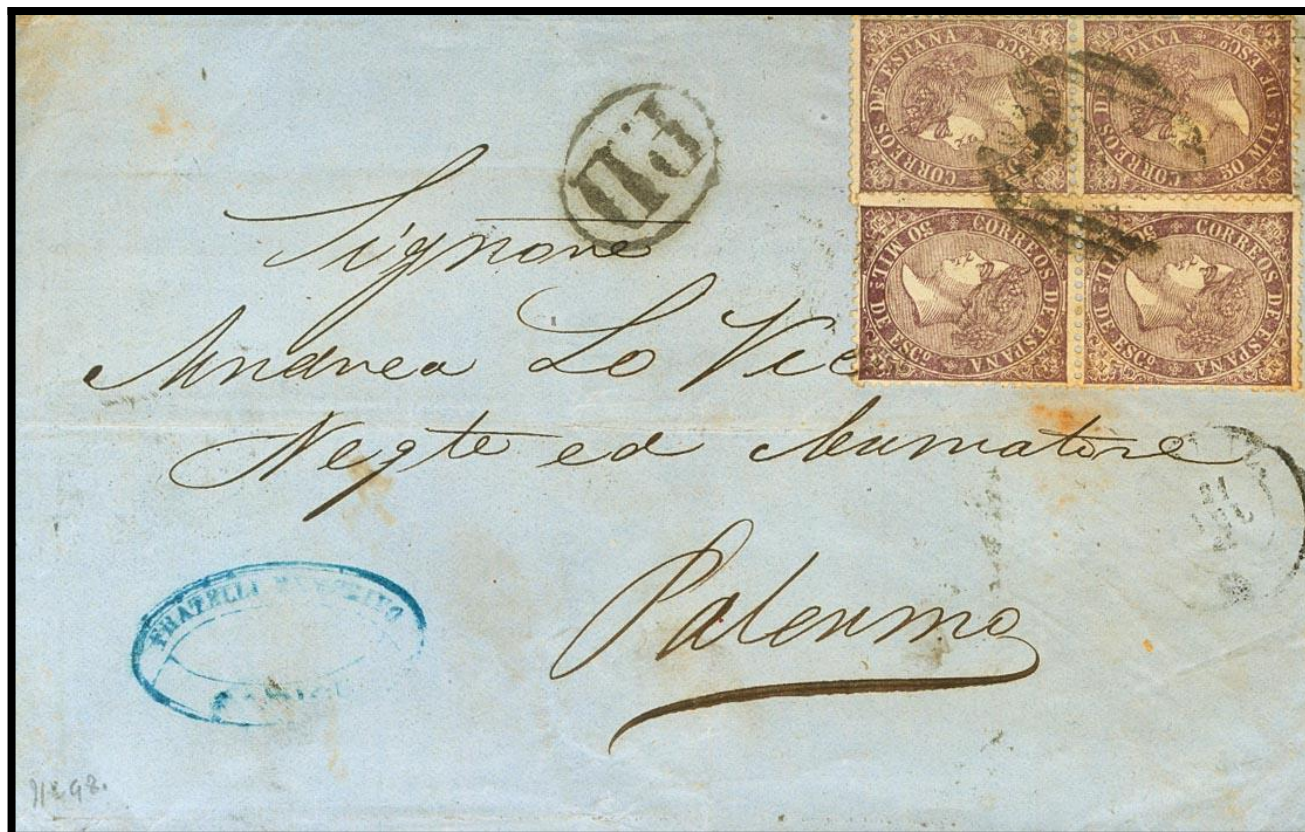 CORREOS DE ESPAÑA 50 MIL.s DE ESC.o
CORREOS DE ESPAÑA 50 MIL.s DE ESC.o
CORREOS DE ESPAÑA 50 MIL.s DE ESC.o
CORREOS DE ESPAÑA 50 MIL.s DE ESC.o
P.D
Signore
Andrea Lo Vic
Negte ed Armatore
Palermo
21
FRATELLI